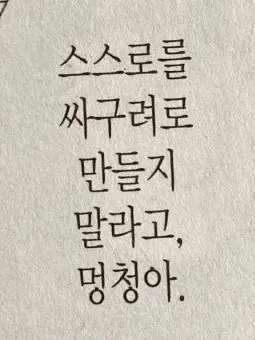 스스로를
싸구려로
만들지
말라고,
멍청아.